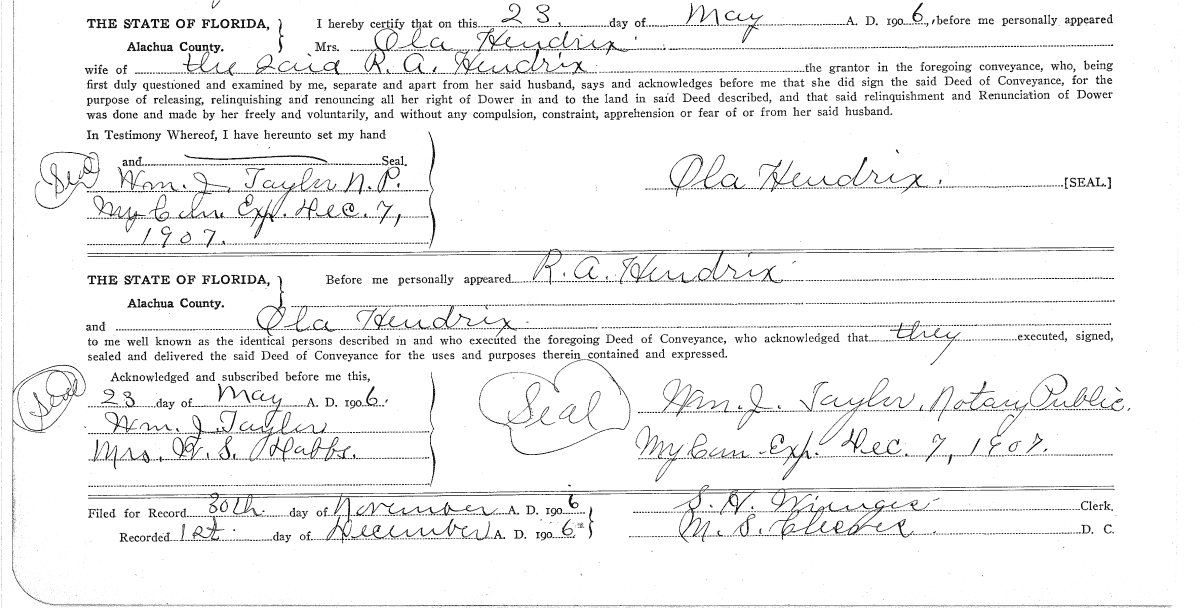 THE STATE OF FLORIDA, } I hereby certify that on this 23. day of May A. D. 1906., before me personally appeared
Alachua County. Mrs. Ola Hendrix.
wife of the said R. A. Hendrix the grantor in the foregoing conveyance, who, being
first duly questioned and examined by me, separate and apart from her said husband, says and acknowledges before me that she did sign the said Deed of Conveyance, for the
purpose of releasing, relinquishing and renouncing all her right of Dower in and to the land in said Deed described, and that said relinquishment and Renunciation of Dower
was done and made by her freely and voluntarily, and without any compulsion, constraint, apprehension or fear of or from her said husband.
In Testimony Whereof, I have hereunto set my hand
and Seal.
Seal Wm. J. Taylor N. P. Ola Hendrix. [SEAL.]
My Com. Exp. Dec. 7,
1907.
THE STATE OF FLORIDA, } Before me personally appeared R. A. Hendrix
Alachua County.
and Ola Hendrix.
to me well known as the identical persons described in and who executed the foregoing Deed of Conveyance, who acknowledged that they executed, signed,
sealed and delivered the said Deed of Conveyance for the uses and purposes therein contained and expressed.
Acknowledged and subscribed before me this,
Seal 23 day of May A. D. 1906. Seal Wm. J. Taylor, Notary Public.
Wm. J. Taylor
Mrs. W. S. My Com Exp. Dec. 7, 1907.
Filed for Record 30th day of November A. D. 1906 S. H. Clerk.
Recorded 1st day of December A. D. 1906 M. S. D. C.